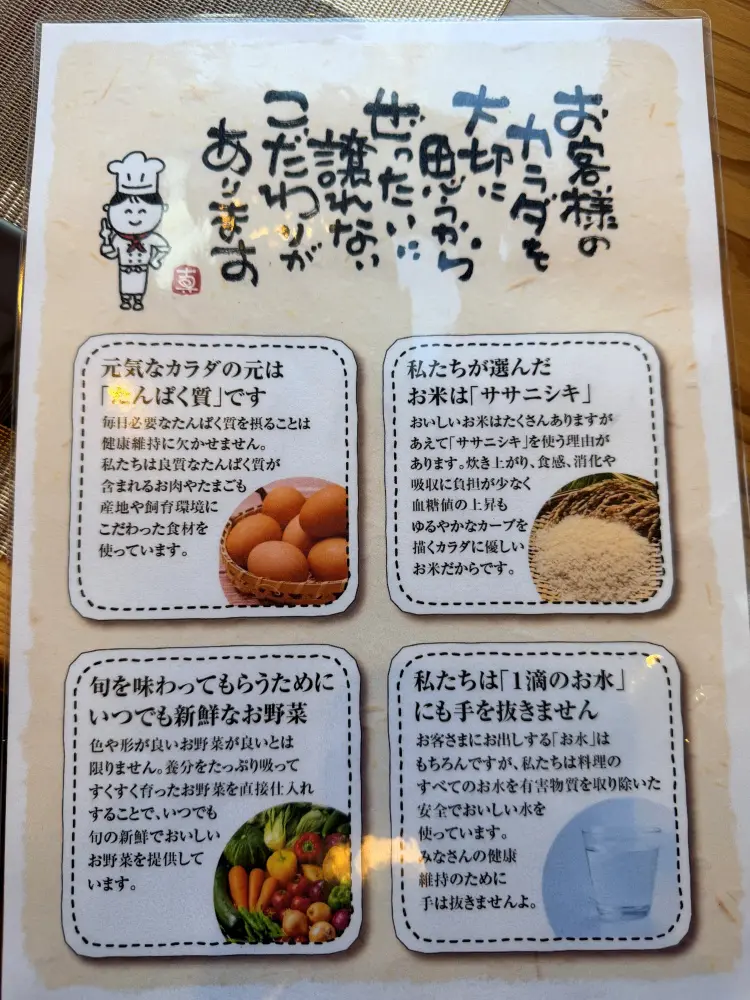 お客様の
カラダを
大切に
思うから
ぜったいに
譲れない
こだわりが
あります
元気なカラダの元は
「たんぱく質」です
毎日必要なたんぱく質を摂ることは
健康維持に欠かせません。
私たちは良質なたんぱく質が
含まれるお肉やたまごも
産地や飼育環境に
こだわった食材を
使っています。
私たちが選んだ
お米は「ササニシキ」
おいしいお米はたくさんありますが
あえて「ササニシキ」を使う理由が
あります。炊き上がり、食感、消化や
吸収に負担が少なく
血糖値の上昇も
ゆるやかなカーブを
描くカラダに優しい
お米だからです。
旬を味わってもらうために
いつでも新鮮なお野菜
色や形が良いお野菜が良いとは
限りません。養分をたっぷり吸って
すくすく育ったお野菜を直接仕入れ
することで、いつでも
旬の新鮮でおいしい
お野菜を提供して
います。
私たちは「1滴のお水」
にも手を抜きません
お客さまにお出しする「お水」は
もちろんですが、私たちは料理の
すべてのお水を有害物質を取り除いた
安全でおいしい水を
使っています。
みなさんの健康
維持のために
手は抜きませんよ。